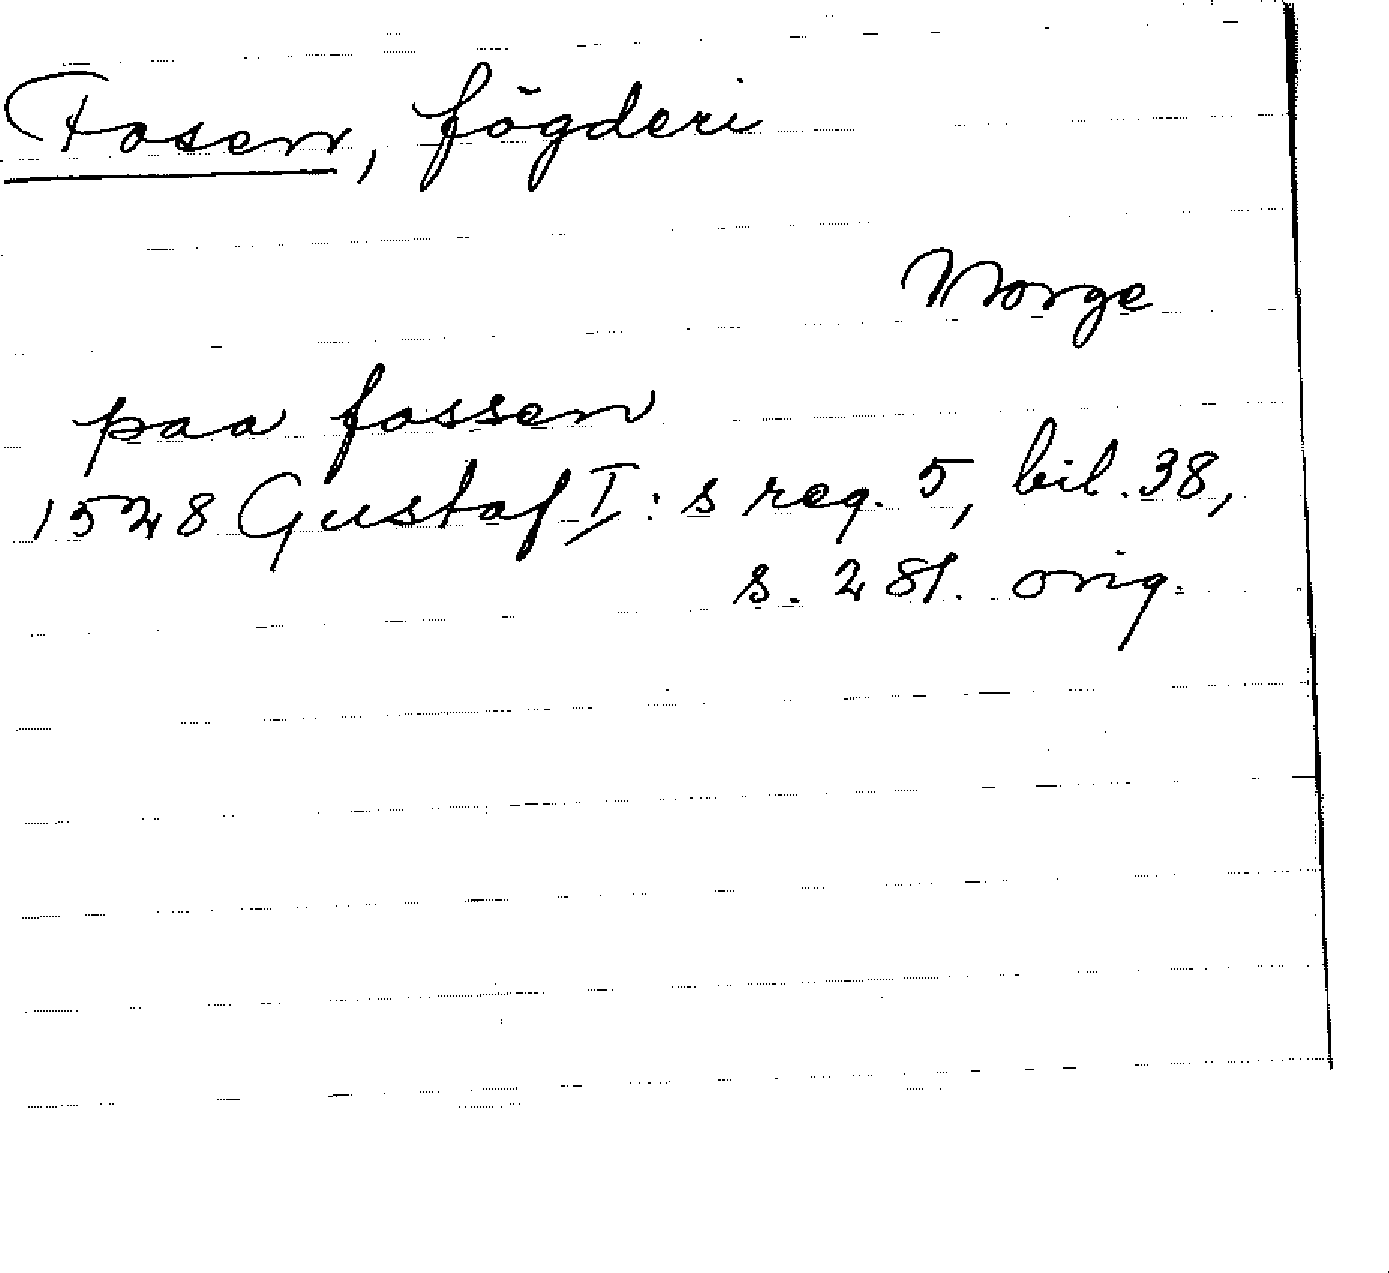 Fosen, fögderi
Norge
paa fossen
1528 Gustaf I:s reg. 5, bil. 38,
s. 281. orig.